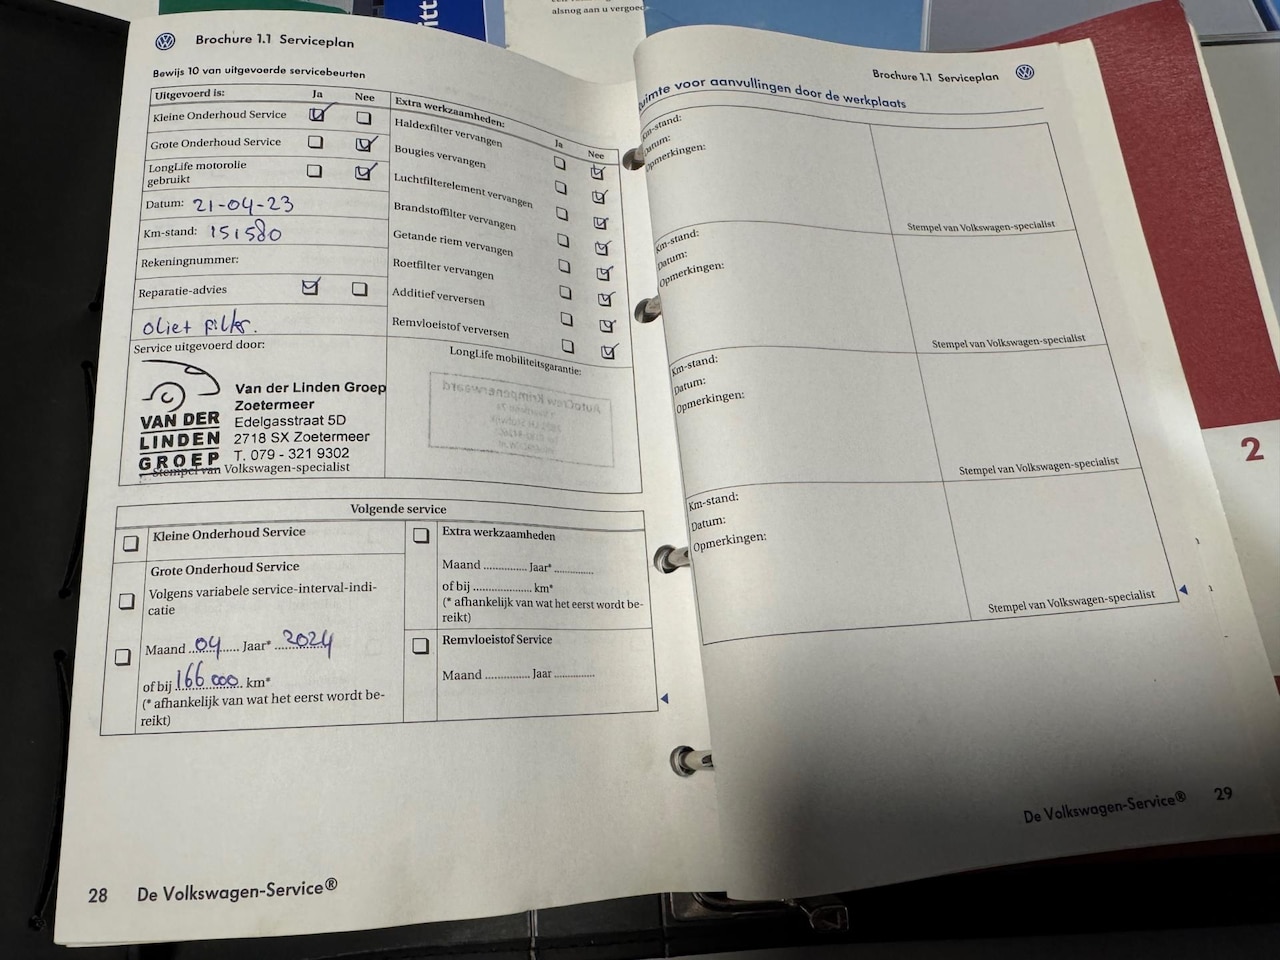 alsnog aan u vergoed
itt
Brochure 1.1 Serviceplan
Bewijs 10 van uitgevoerde servicebeurten
Uitgevoerd is: Ja Nee
Kleine Onderhoud Service
Grote Onderhoud Service
LongLife motorolie
gebruikt
Datum: 21-04-23
Km-stand: 151580
Rekeningnummer:
Reparatie-advies
oliet filter.
Service uitgevoerd door:
VAN DER
LINDEN
GROEP
Van der Linden Groep
Zoetermeer
Edelgasstraat 5D
2718 SX Zoetermeer
T. 079 - 321 9302
Stempel van Volkswagen-specialist
Extra werkzaamheden: Ja Nee
Haldexfilter vervangen
Bougies vervangen
Luchtfilterelement vervangen
Brandstoffilter vervangen
Getande riem vervangen
Roetfilter vervangen
Additief verversen
Remvloeistof verversen
LongLife mobiliteitsgarantie:
AutoCrew Krimpenerwaard
Volgende service
Kleine Onderhoud Service
Grote Onderhoud Service
Volgens variabele service-interval-indi-
catie
Maand 04 Jaar* 2024
of bij 166 000 km*
(* afhankelijk van wat het eerst wordt be-
reikt)
Extra werkzaamheden
Maand .............. Jaar* ..............
of bij .................... km*
(* afhankelijk van wat het eerst wordt be-
reikt)
Remvloeistof Service
Maand ............... Jaar ..............
28 De Volkswagen-Service®
Brochure 1.1 Serviceplan
Ruimte voor aanvullingen door de werkplaats
Km-stand:
Datum:
Opmerkingen:
Stempel van Volkswagen-specialist
Km-stand:
Datum:
Opmerkingen:
Stempel van Volkswagen-specialist
Km-stand:
Datum:
Opmerkingen:
Stempel van Volkswagen-specialist
Km-stand:
Datum:
Opmerkingen:
Stempel van Volkswagen-specialist
De Volkswagen-Service® 29
2
1
1